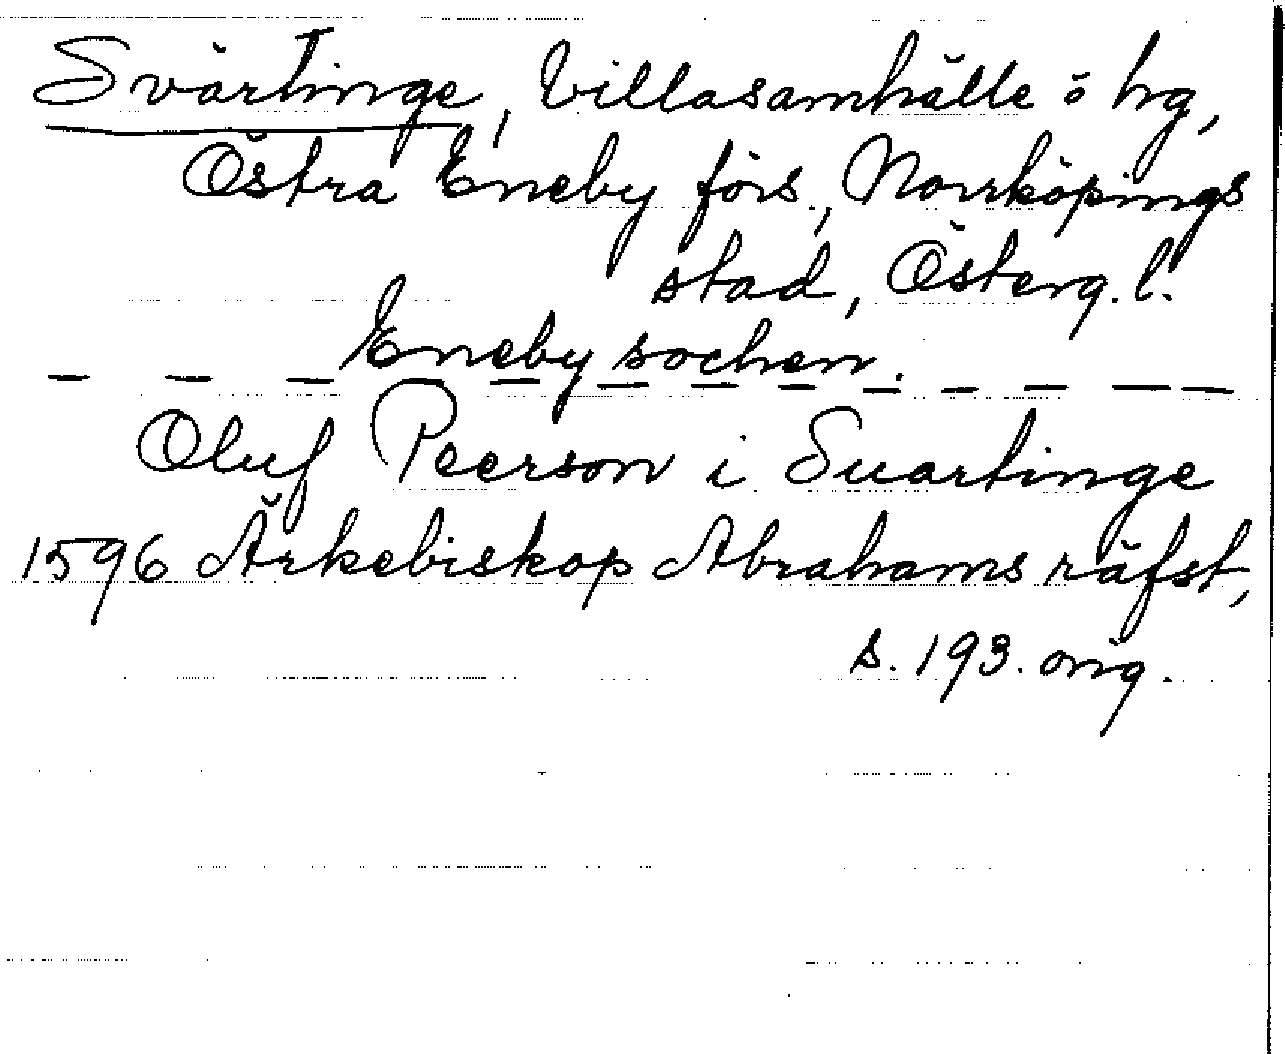 Svärtinge, villasamhälle o hg,
Östra Eneby förs., Norrköpings
stad, Österg. l.
Eneby sochen.
Oluf Peerson i Suartinge
1596 Ärkebiskop Abrahams räfst,
s. 193. orig.